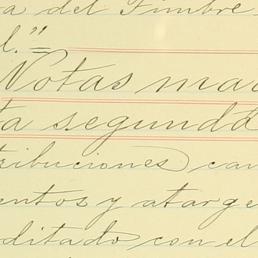 a del Timbre
l."=
Notas mar
ta segunda
tribuciones can
entos y atarge
ditado con el